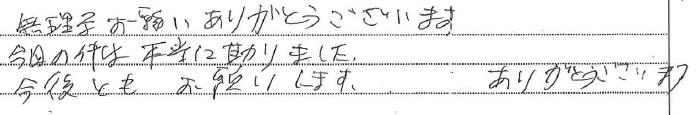 無理矢お願いありがとうございます
今回の件は本当に助かりました。
今後とも お願いします。 ありがとうございます